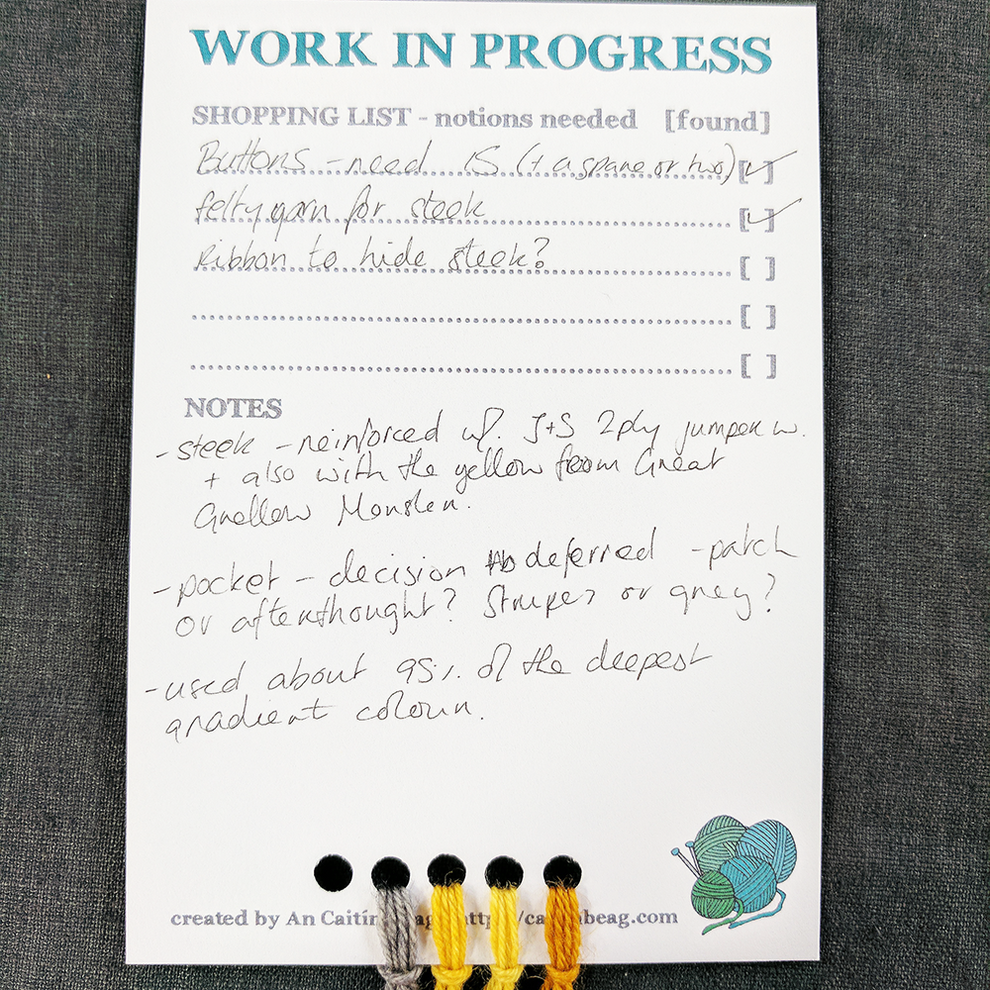 WORK IN PROGRESS
SHOPPING LIST - notions needed [found]
Buttons - need 15 (+ a spare or two) [✓]
felty yarn for steek [✓]
Ribbon to hide steek? [ ]
[ ]
[ ]
NOTES
- steek - reinforced w/. J+S 2ply jumper w.
+ also with the yellow from Great
Grellow Monster.
- pocket - decision deferred - patch
or afterthought? Stripes or grey?
- used about 95% of the deepest
gradient colour.
created by An Caitín ag http /ca beag.com